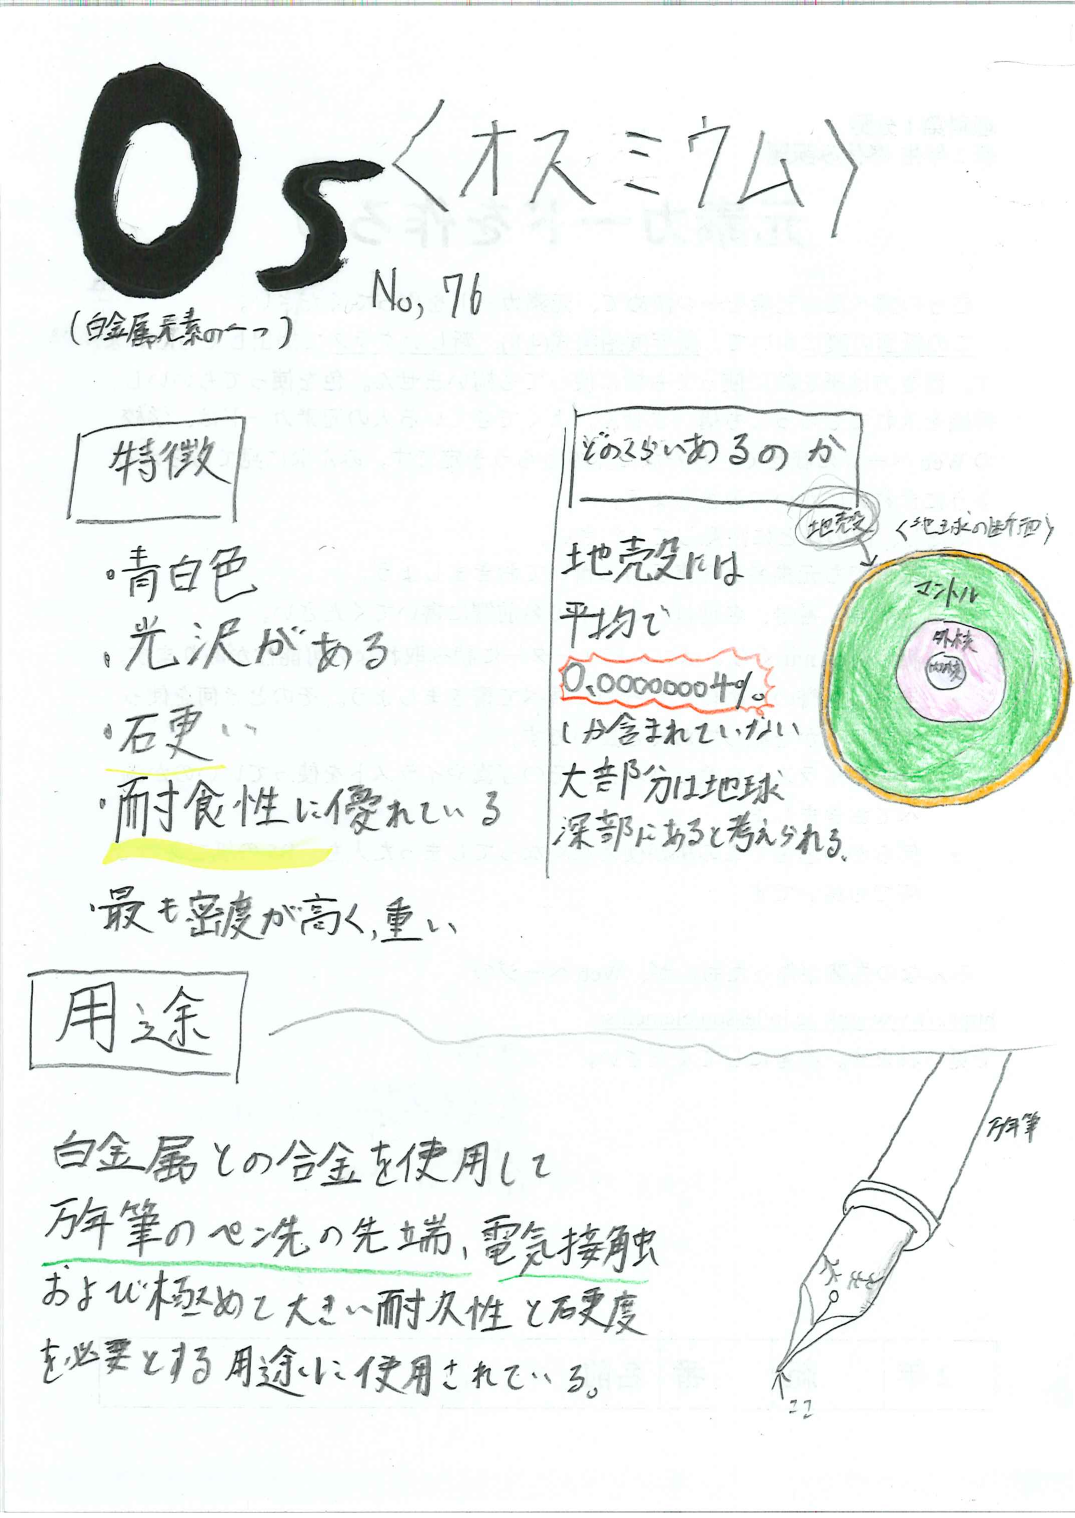 Os
〈オスミウム〉
No, 76
(白金属元素の一つ)
特徴
・青白色
・光沢がある
・硬い
・耐食性に優れている
・最も密度が高く,重い
どのくらいあるのか
地殻には
平均で
0.0000004%
しか含まれていない
大部分は地球
深部にあると考えられる。
地殻
〈地球の断面〉
マントル
外核
内核
用途
白金属との合金を使用して
万年筆のペン先の先端、電気接触
および極めて大きい耐久性と硬度
を必要とする用途に使用されている。
万年筆
ココ